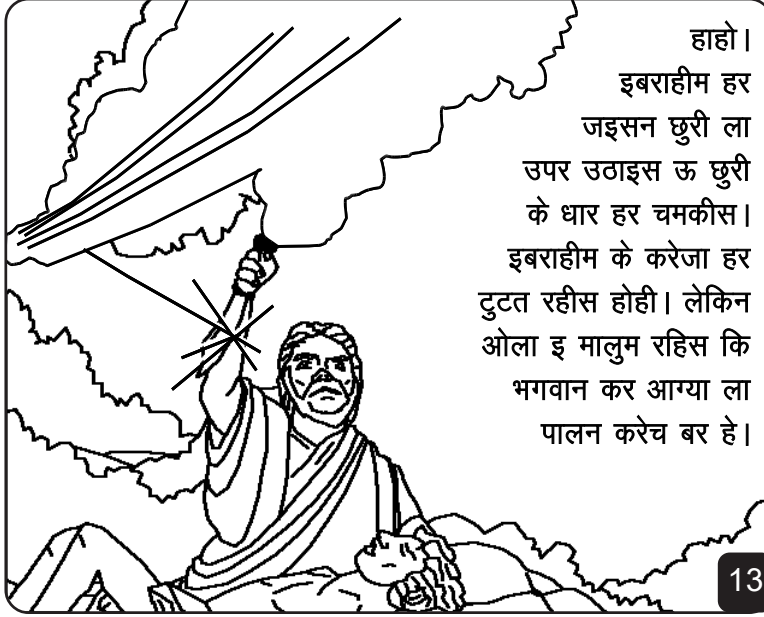 हाहो।
इबराहीम हर
जइसन छुरी ला
उपर उठाइस ऊ छुरी
के धार हर चमकीस।
इबराहीम के करेजा हर
टुटत रहीस होही। लेकिन
ओला इ मालुम रहिस कि
भगवान कर आग्या ला
पालन करेच बर हे।
13